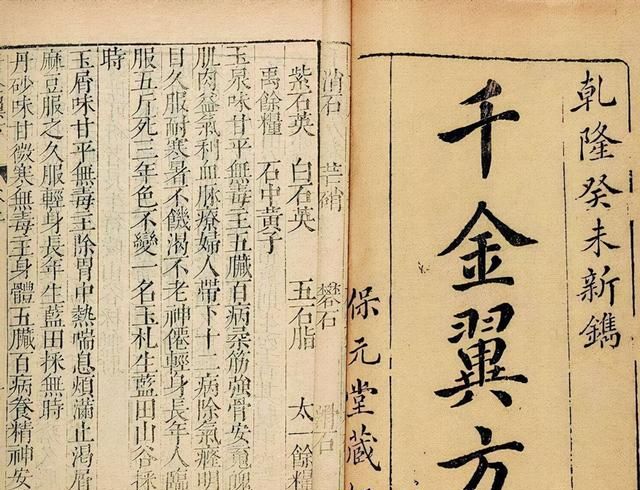 乾隆癸未新鐫
千金翼方
保元堂藏
消石 芒硝 礬石 滑石
紫石英 白石英 五石脂 太一餘糧
禹餘糧 石中黃子
玉泉味甘平無毒主五臟百病柔筋強骨安魂魄
肌肉益氣利血脉療婦人帶下十二病除氣癃明
目久服耐寒暑不饑渴不老神僊輕身長年人臨
服五斤死三年色不變一名玉札生藍田山谷採
時
玉屑味甘平無毒主除胃中熱喘息煩滿止渴屑
麻豆服之久服輕身長年生藍田採無時
丹砂味甘微寒無毒主身體五臟百病養精神安